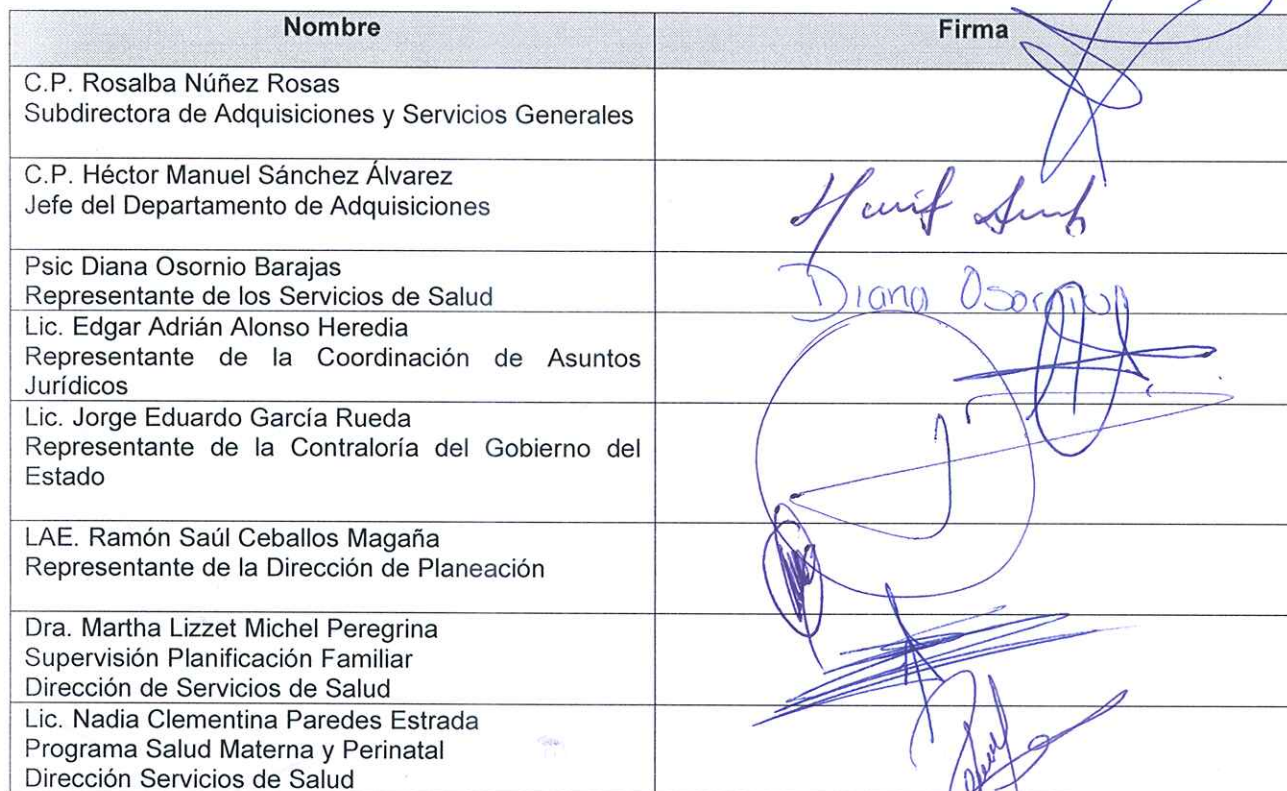 Nombre Firma
C.P. Rosalba Núñez Rosas
Subdirectora de Adquisiciones y Servicios Generales
C.P. Héctor Manuel Sánchez Álvarez
Jefe del Departamento de Adquisiciones
Psic Diana Osornio Barajas
Representante de los Servicios de Salud
Diana Osornio
Lic. Edgar Adrián Alonso Heredia
Representante de la Coordinación de Asuntos
Jurídicos
Lic. Jorge Eduardo García Rueda
Representante de la Contraloría del Gobierno del
Estado
LAE. Ramón Saúl Ceballos Magaña
Representante de la Dirección de Planeación
Dra. Martha Lizzet Michel Peregrina
Supervisión Planificación Familiar
Dirección de Servicios de Salud
Lic. Nadia Clementina Paredes Estrada
Programa Salud Materna y Perinatal
Dirección Servicios de Salud